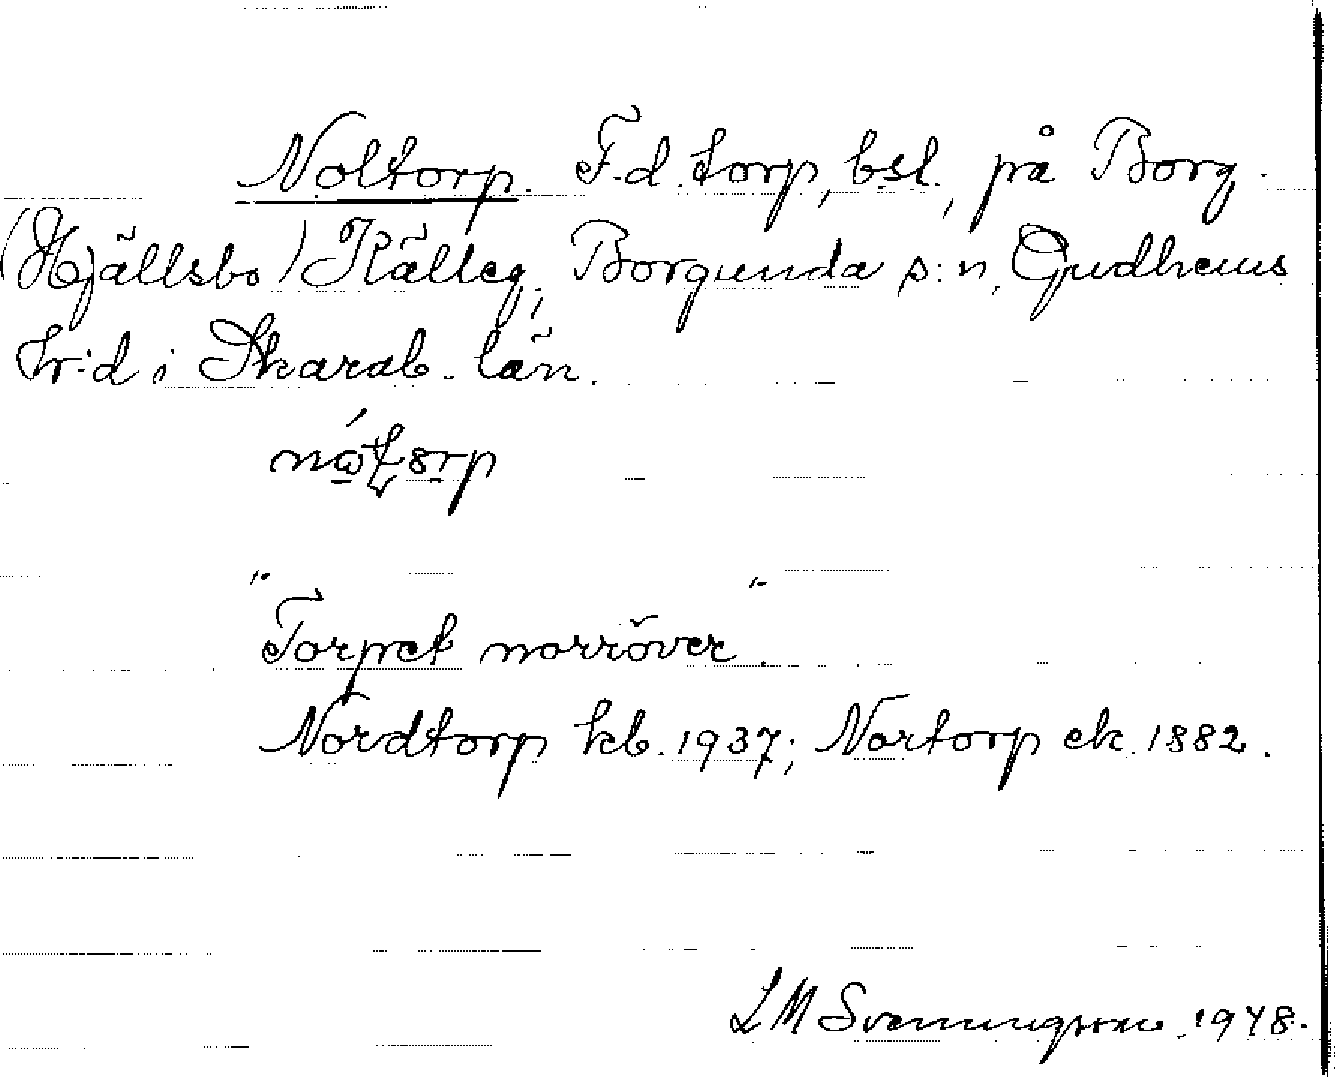 Noltorp. F.d. torp, bsl., på Borg.
(Hjällsbo) Källeg., Borgunda s:n, Gudhems
hr:d i Skarab. län.
"Torpet norröver".
Nordtorp kb. 1937; Nortorp ek. 1882.
LM Svenungsson 1948.